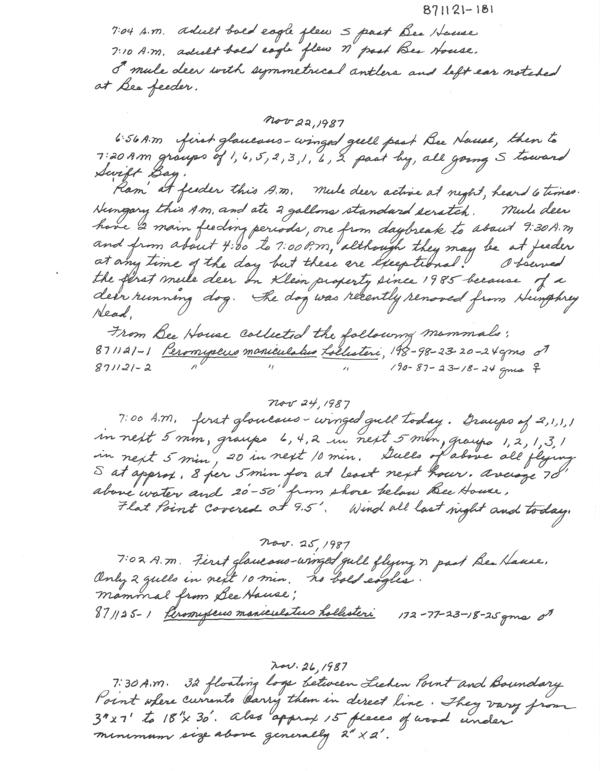 871121-181
7:04 A.M. adult bald eagle flew S past Bee House
7:10 A.M. adult bald eagle flew N past Bee House.
♂ mule deer with symmetrical antlers and left ear notched
at Bee feeder.
Nov 22, 1987
6:56 A.M. first glaucous-winged gull past Bee House, then to
7:20 A.M groups of 1, 6, 5, 2, 3, 1, 6, 2 past by, all going S toward
Swift Bay.
"Ram" at feeder this A.M. Mule deer active at night, heard 6 times.
Hungary this A.M. and ate 2 gallons standard scratch. Mule deer
have 2 main feeding periods, one from daybreak to about 9:30 A.M
and from about 4:00 to 7:00 P.M, although they may be at feeder
at any time of the day but these are exceptional. Observed
the first mule deer on Klein property since 1985 because of a
deer running dog. The dog was recently removed from Humphrey
Head.
From Bee House collected the following mammals:
871121-1 Peromyscus maniculatus hollisteri, 198-98-23-20-24 gms ♂
871121-2 " " " 190-87-23-18-24 gms ♀
Nov 24, 1987
7:00 A.M. first glaucous-winged gull today. Groups of 2, 1, 1, 1
in next 5 min, groups 6, 4, 2 in next 5 min, groups 1, 2, 1, 3, 1
in next 5 min, 20 in next 10 min. Gulls of above all flying
S at approx. 8 per 5 min for at least next hour. Average 70'
above water and 20'-50' from shore below Bee House.
Flat Point covered at 9.5'. Wind all last night and today.
Nov. 25, 1987
7:02 A.M. First glaucous-winged gull flying N past Bee House.
Only 2 gulls in next 10 min. No bald eagles.
Mammal from Bee House;
871125-1 Peromyscus maniculatus hollisteri 172-77-23-18-25 gms ♂
Nov. 26, 1987
7:30 A.M. 32 floating logs between Lichen Point and Boundary
Point where currants carry them in direct line. They vary from
3"x7' to 18"x30'. Also approx 15 pieces of wood under
minimum size above generally 2"x2'.